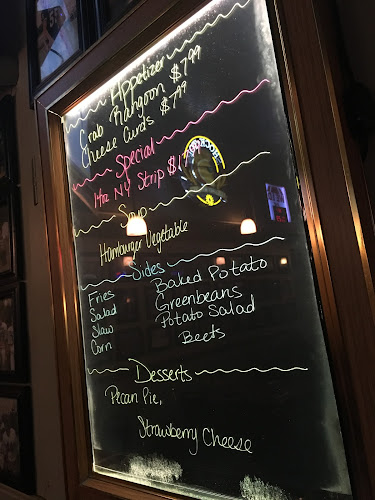 Appetizer
Crab Rangoon $7.99
Cheese Curds $7.99
Special
14oz NY Strip
Soup
Hamburger Vegetable
Sides
Fries Baked Potato
Salad Greenbeans
Slaw Potato Salad
Corn Beets
Desserts
Pecan Pie,
Strawberry Cheese